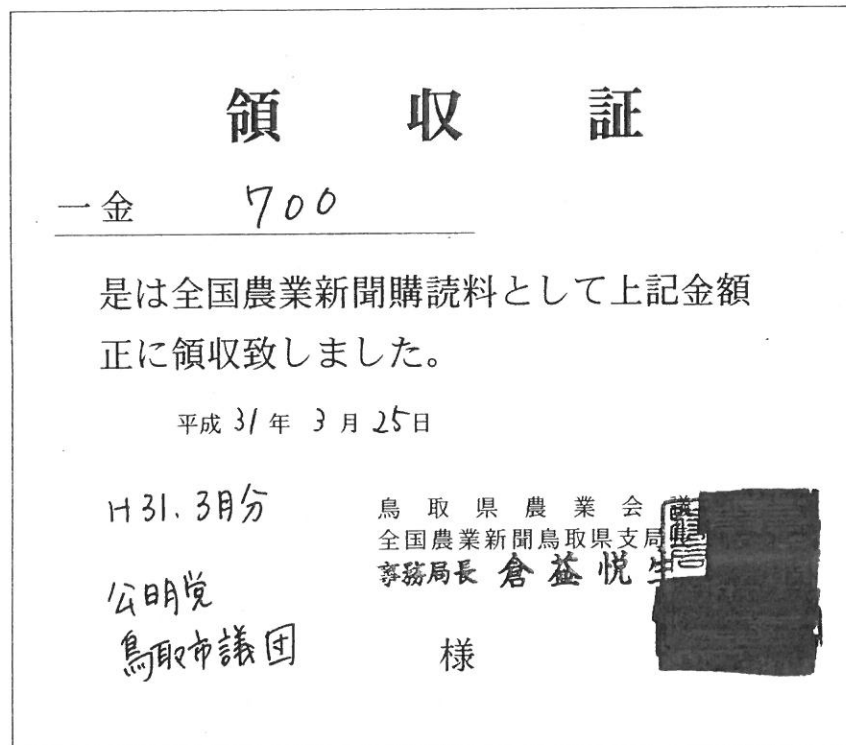 領収証
一金 700
是は全国農業新聞購読料として上記金額
正に領収致しました。
平成 31 年 3 月 25 日
H31.3月分
鳥取県農業会議
全国農業新聞鳥取県支局
事務局長 倉益悦生
公明党
鳥取市議団 様